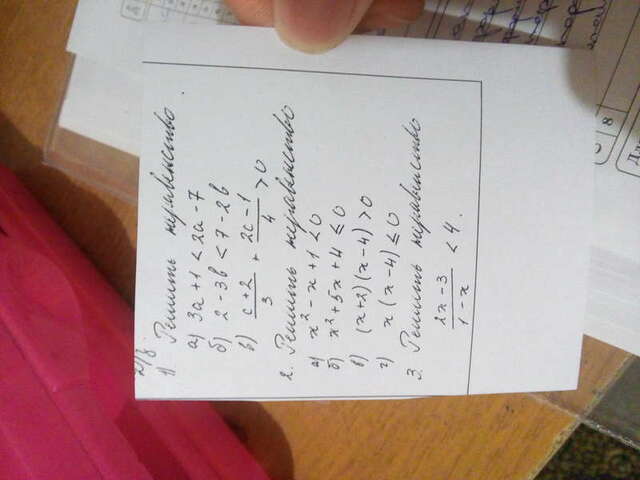 Д/з.
1) Решить неравенство
а) 3a + 1 < 2a - 7
б) 2 - 3b < 7 - 2b
в) (c+2)/3 + (2c-1)/4 > 0
2. Решить неравенство
а) x² - x + 1 < 0
б) x² + 5x + 4 ≤ 0
в) (x+2)(x-4) > 0
г) x(x-4) ≤ 0
3. Решить неравенство
(2x-3)/(1-x) < 4.
8